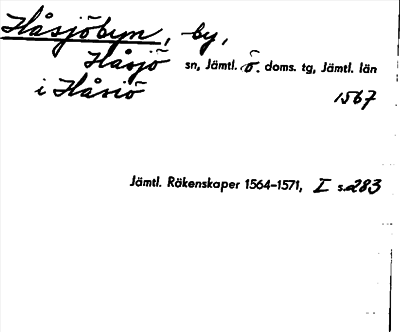 Håsjöbyn, by,
Håsjö sn, Jämtl. ö. doms. tg, Jämtl. län
i Håsiö 1567
Jämtl. Räkenskaper 1564-1571, I s. 283